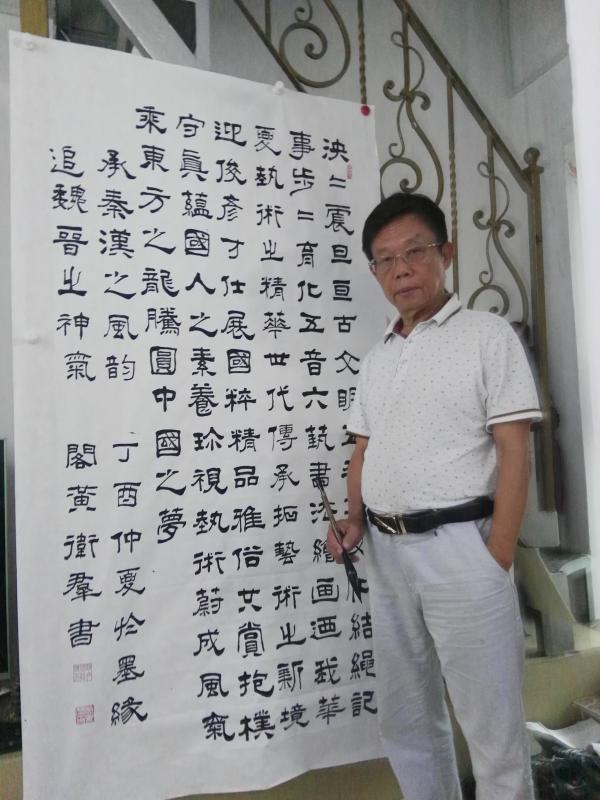 泱〻震旦亘古文明 結繩記
事步〻育化五音六藝書法繪画迺我華
夏執術之精華世代傳承拓藝術之新境
迎俊彥才仕展國粹精品雅俗共賞抱樸
守真蘊國人之素養珎視執術蔚成風氣
乘東方之龍騰圓中國之夢
承秦漢之風韵
追魏晉之神氣
丁酉仲夏於墨緣
閣黃衛羣書